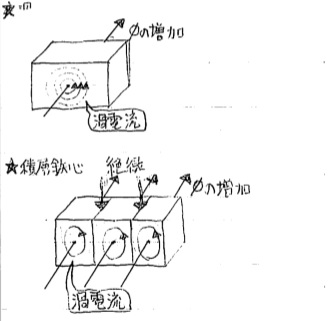 φの増加
渦電流
☆積層鉄心 絶縁
φの増加
渦電流